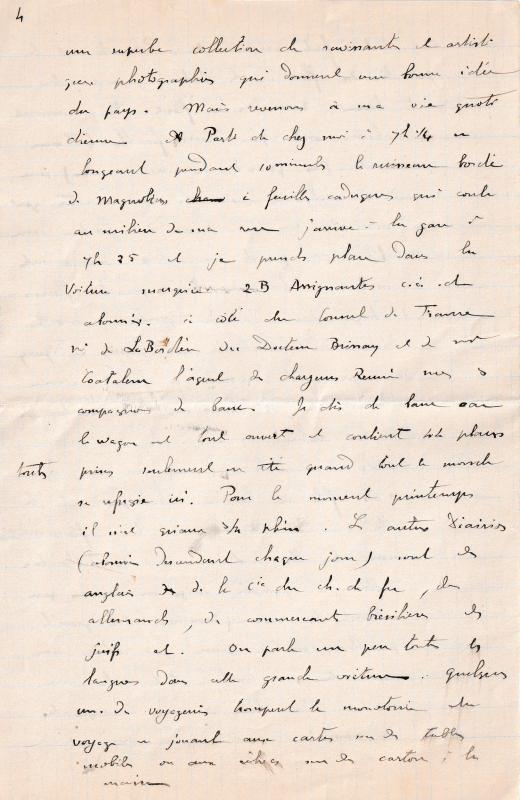 4
une superbe collection de ravissantes et artisti
ques photographies qui donnent une bonne idée
du pays. Mais revenons à ma vie quoti
dienne Parti de chez moi à 7h 1/4 en
longeant pendant 10 minutes le ruisseau bordé
de Magnolias à feuilles caduques qui coule
au milieu de ma rue j'arrive à la gare à
7h 25 et je prends place dans la
voiture marquée 2B Assignantes c.à.d
abonnés. à côté du Consul de France
Mr de du Docteur Brissay et de Mr
Coatalem l'agent des chargeurs Réunis mes 3
compagnons de banc. Je dis de banc car
le wagon est tout ouvert et contient places
toutes prises seulement en été quand tout le monde
se réfugie ici. Pour le moment printemps
il n'est qu'aux 3/4 plein. Les autres Diarios
(abonnés descendant chaque jour) sont des
anglais de la Cie du ch. de fer, des
allemands, des commerçants brésiliens des
juifs et. On parle un peu toutes les
langues dans cette grande voiture. Quelques
uns des voyageurs trompent la monotonie du
voyage en jouant aux cartes sur des tables
mobiles ou aux échecs sur des cartons à la
main